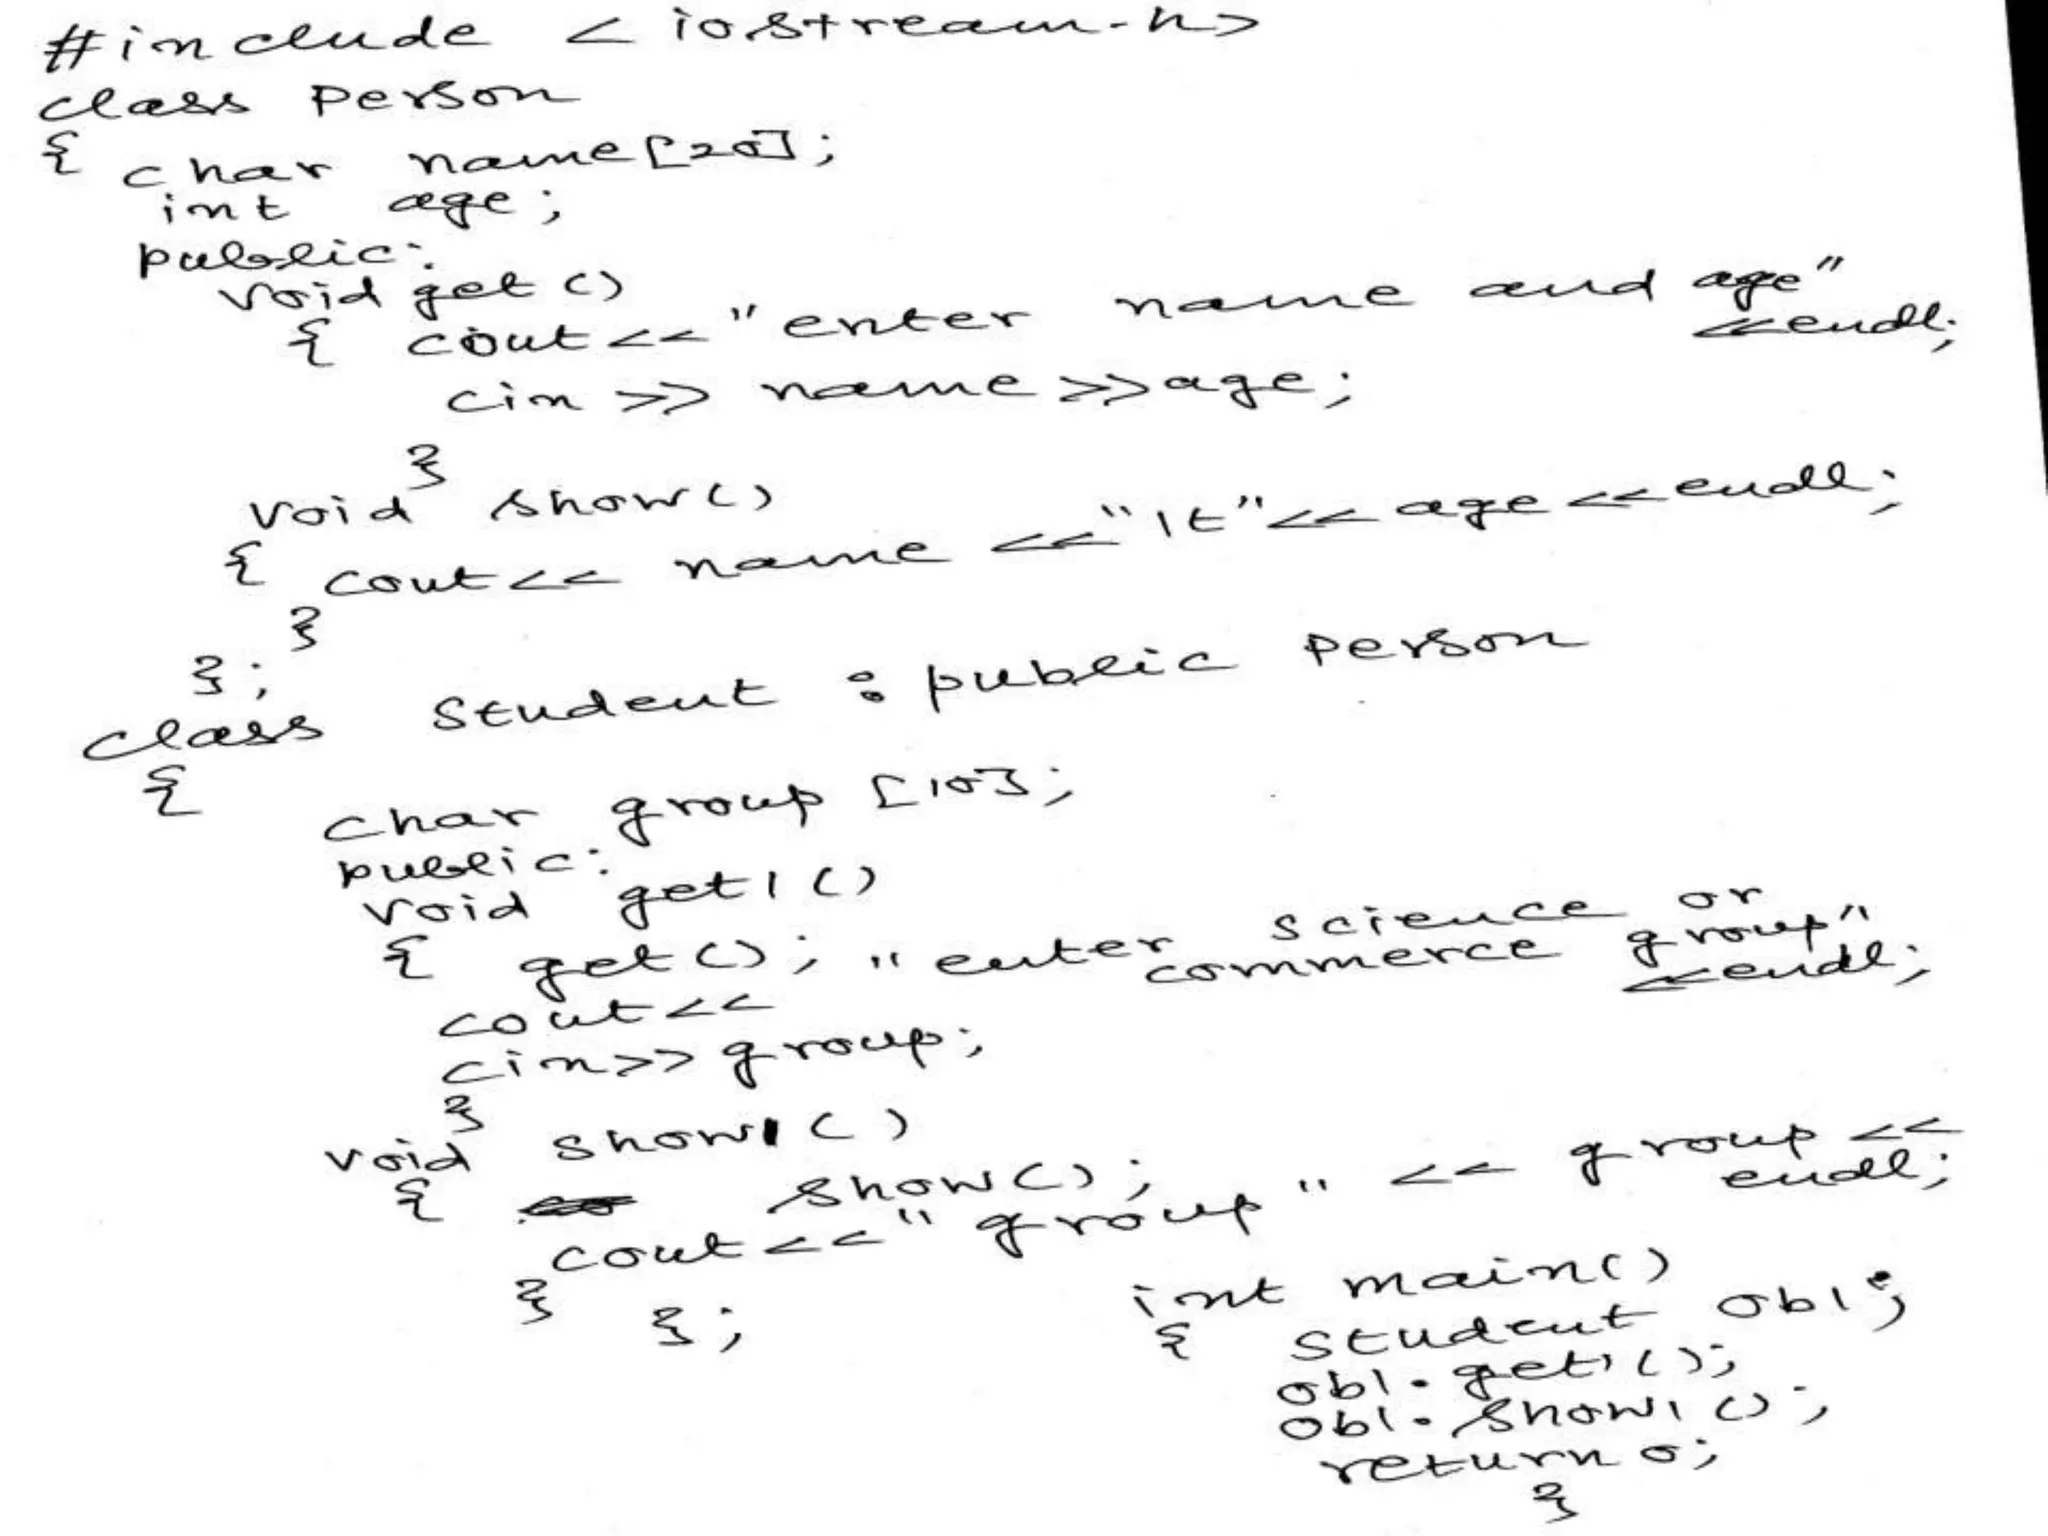 #include < iostream.h>
class person
{ char name[20];
int age;
public:
void get ()
{ cout<<"enter name and age"
<<endl;
cin >> name>>age;
}
void show()
{ cout<< name <<"\t"<< age <<endl;
}
};
class student : public person
{
char group [10];
public:
void get1 ()
{ get(); "enter science or
commerce group"
<<endl;
cout<<
cin>>group;
}
void show1()
{ show();
cout<<"group" << group <<
endl;
}
};
int main()
{ student ob1;
ob1.get1();
ob1.show1();
return 0;
}